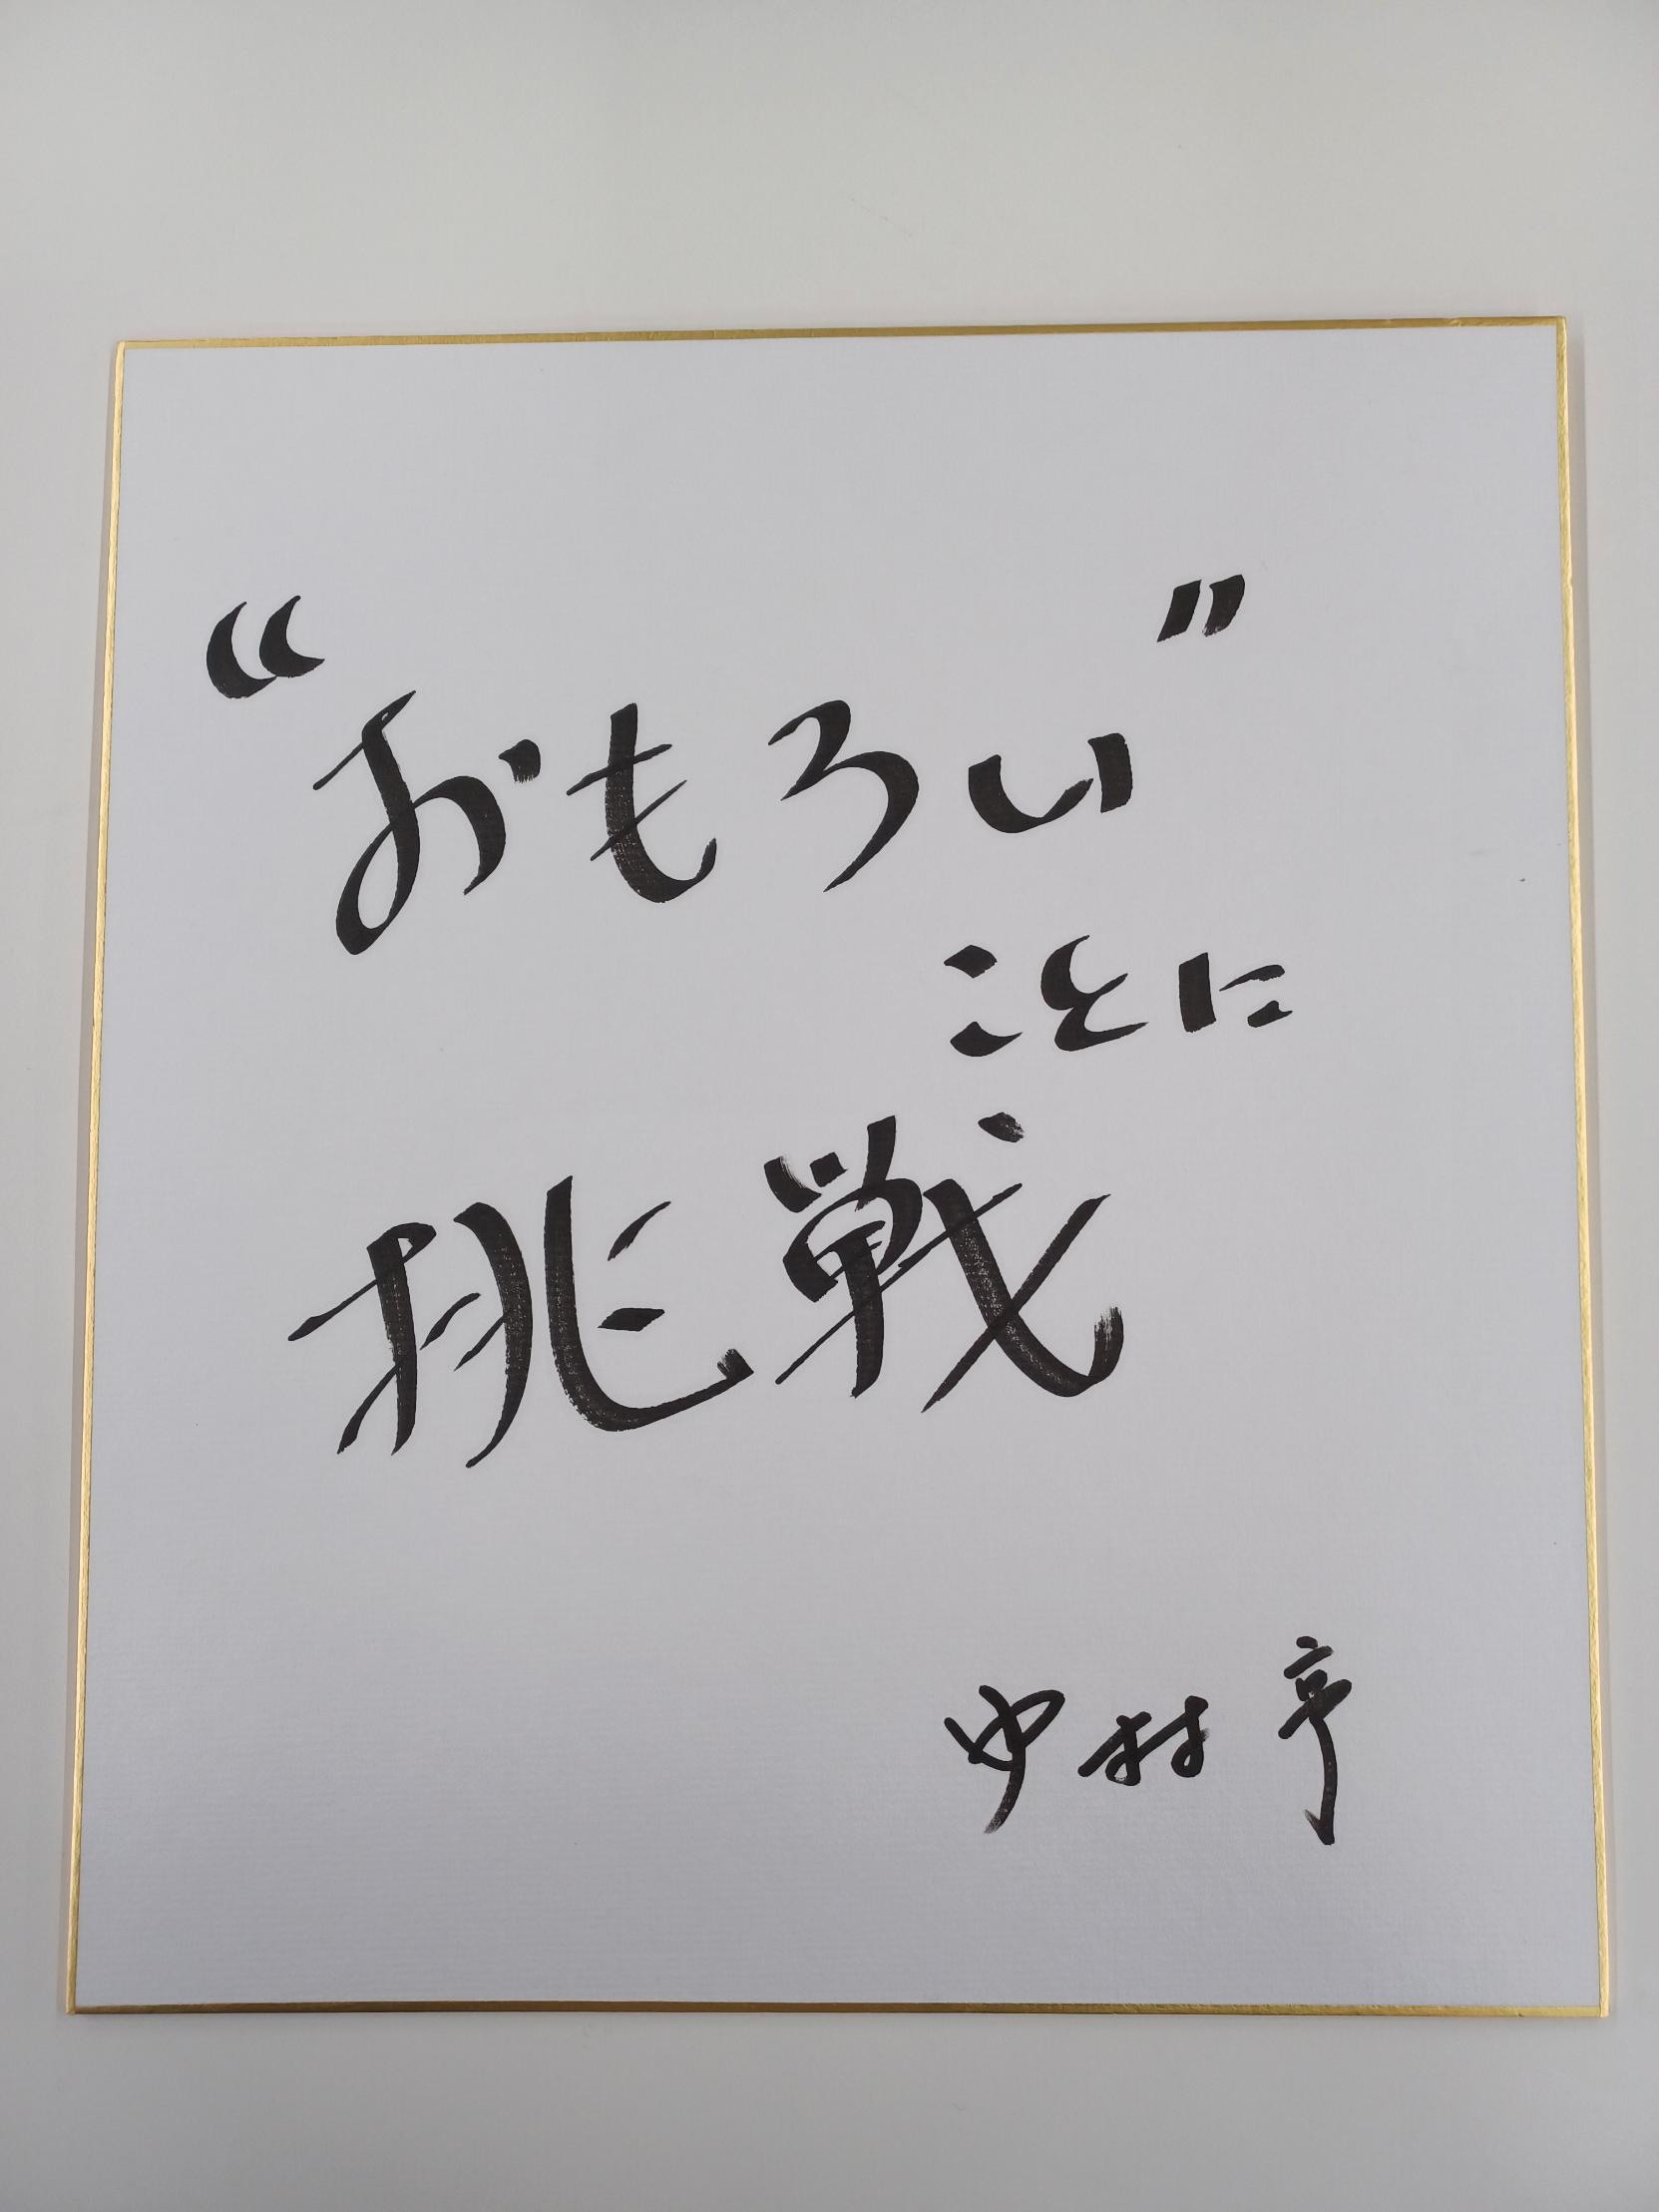 “おもろい”
ことに
挑戦
中村 亨